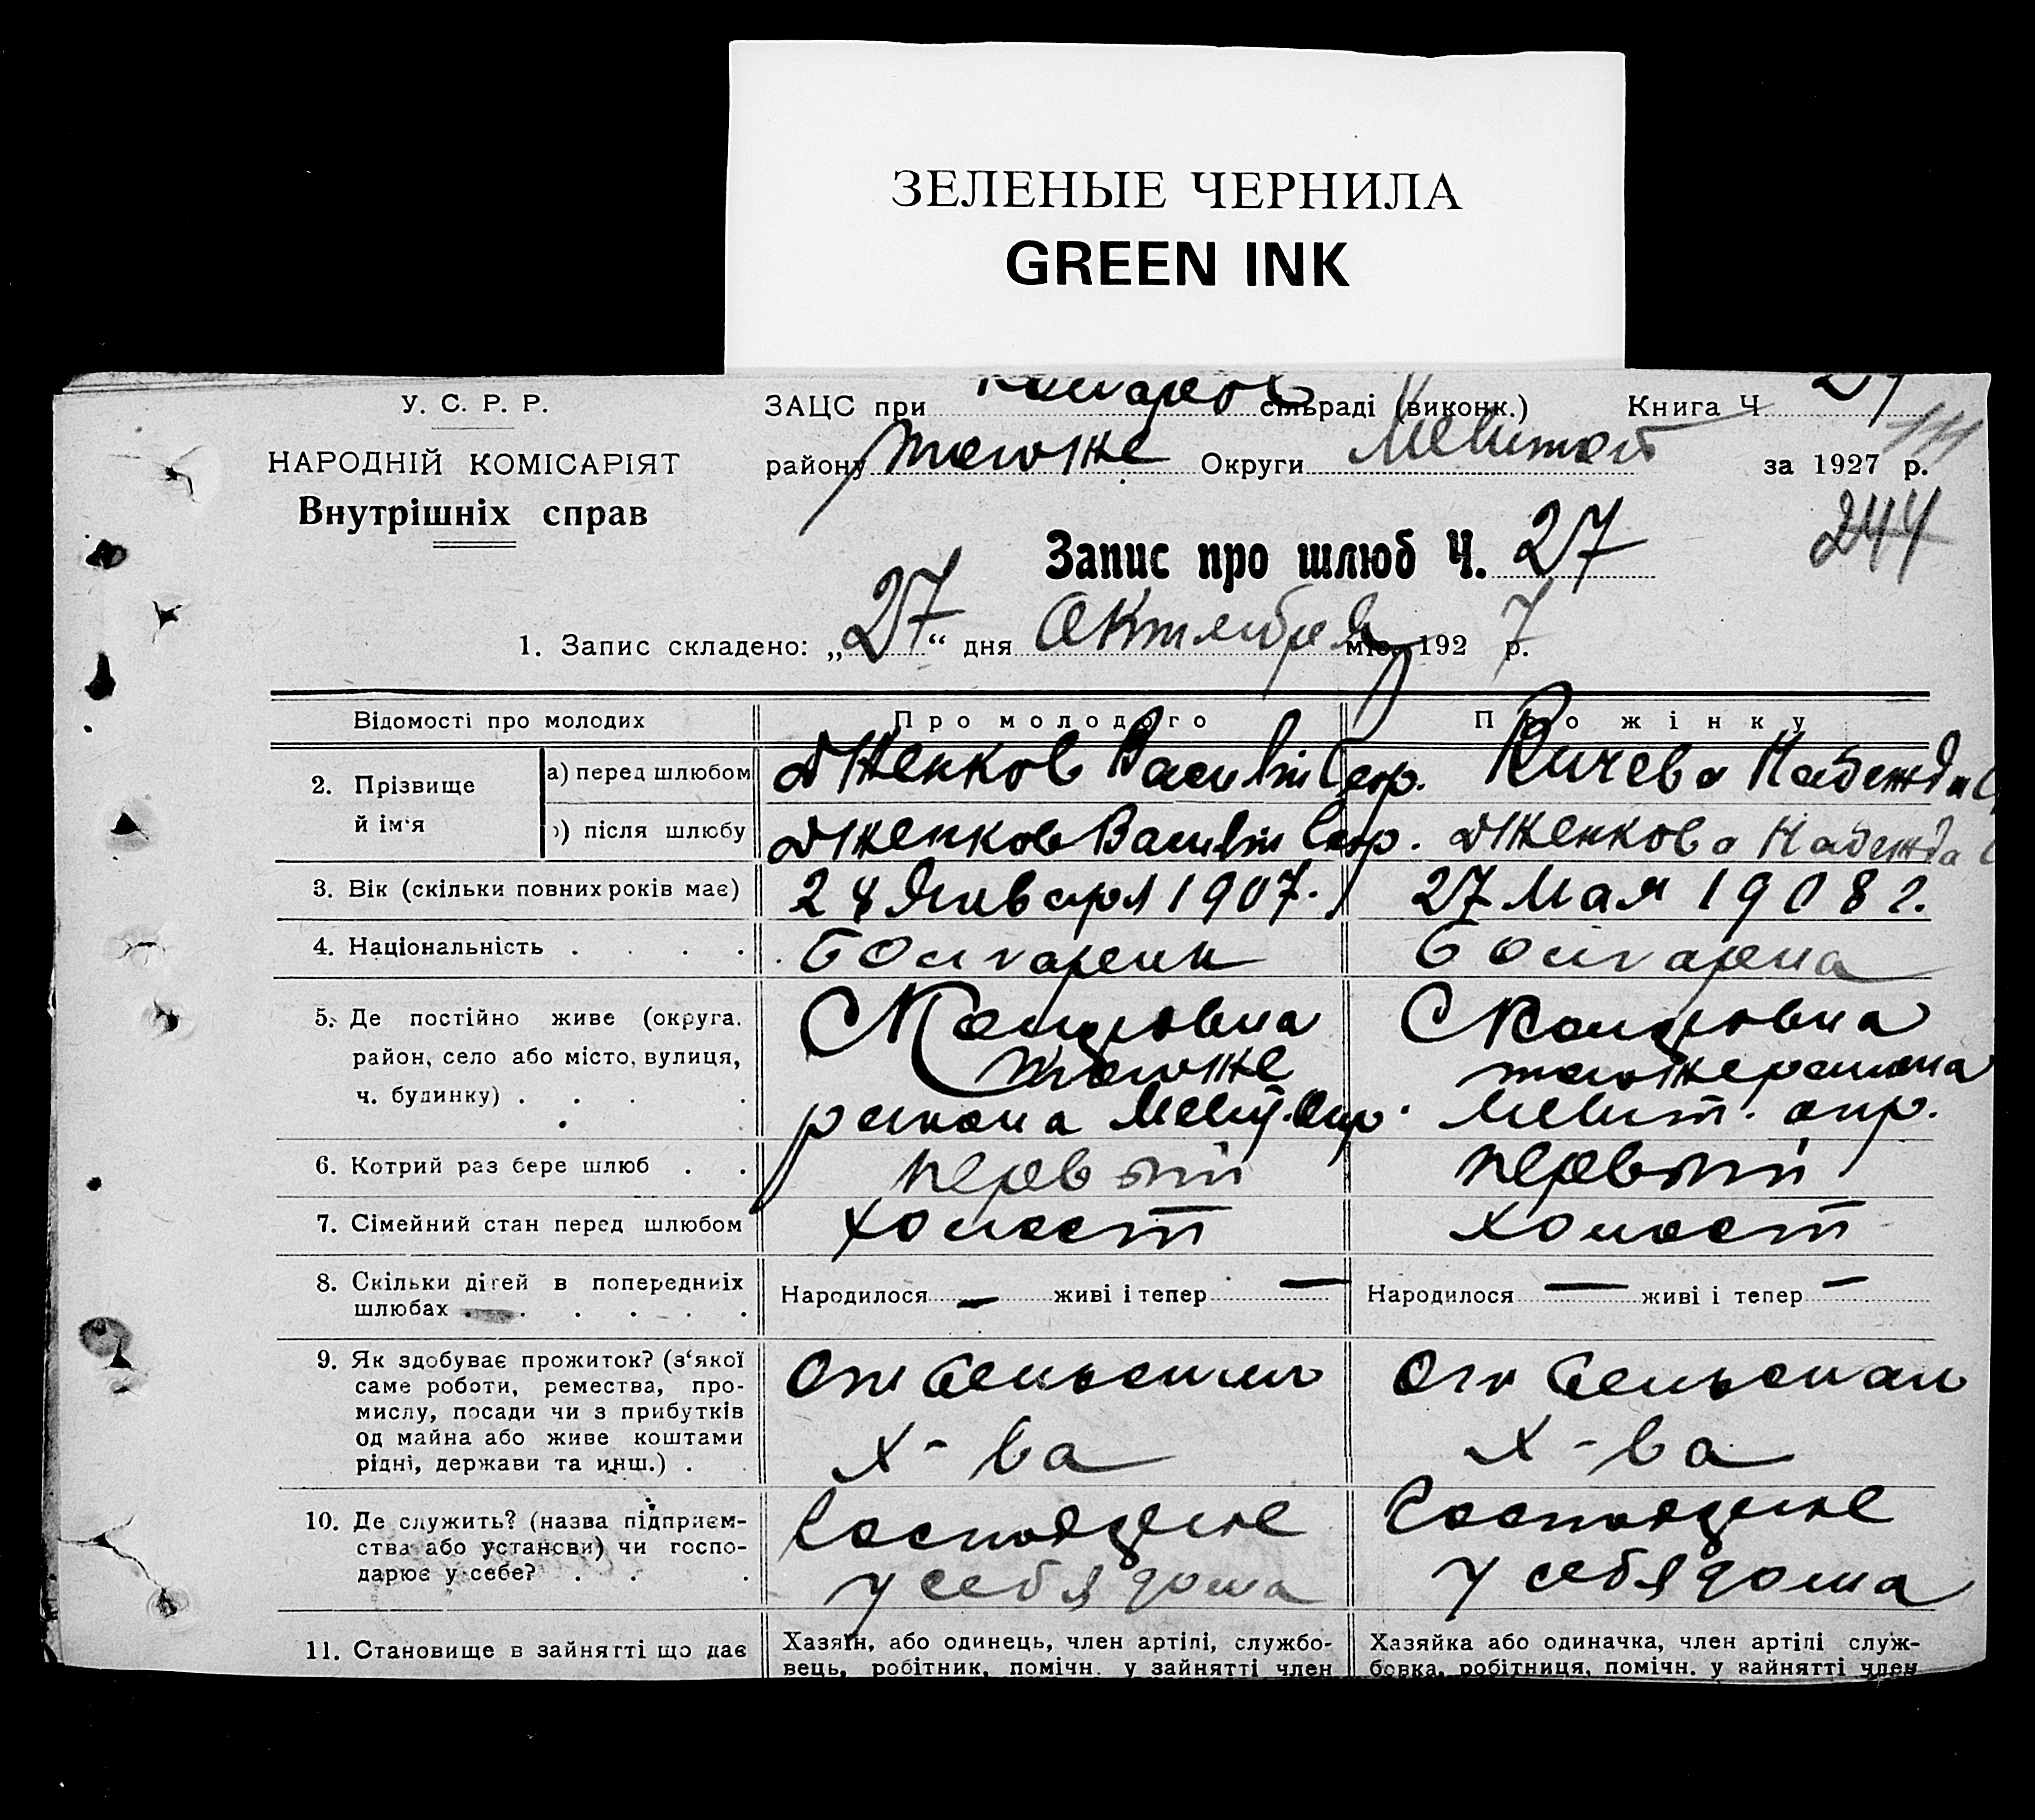 ЗЕЛЕНЫЕ ЧЕРНИЛА
GREEN INK
У. С. Р. Р.
НАРОДНІЙ КОМІСАРІЯТ
Внутрішніх справ
ЗАЦС при сільраді (виконк.) Книга Ч
району Округи за 1927 р.
244
Запис про шлюб Ч. 27
1. Запис складено: „27“ дня Октября міс. 1927 р.
Відомості про молодих Про молодого Про жінку
2. Прізвище й ім‘я
а) перед шлюбом Дженков Василий Надежда
) після шлюбу Дженков Василий Дженкова Надежда
3. Вік (скільки повних років має) 28 Января 1907. 27 Мая 1908 г.
4. Національність . . . . Болгарин Болгарка
5. Де постійно живе (округа,
район, село або місто, вулиця,
ч. будинку) . . . .
района Мелит. окр.
6. Котрий раз бере шлюб . . первый первый
7. Сімейний стан перед шлюбом холост холост
8. Скільки дітей в попередниіх
шлюбах . . . . . .
Народилося — живі і тепер — Народилося — живі і тепер —
9. Як здобуває прожиток? (з‘якої
саме роботи, ремества, про-
мислу, посади чи з прибутків
од майна або живе коштами
рідні, держави та инш.) .
От сельского От сельского
х-ва х-ва
10. Де служить? (назва підприєм-
ства або установи) чи госпо-
дарює у себе? . . .
у себя дома у себя дома
11. Становище в зайнятті що дає
Хазяїн, або одинець, член артілі, службо-
вець, робітник, помічн. у зайнятті член
Хазяйка або одиначка, член артілі служ-
бовка, робітниця, помічн. у зайнятті член